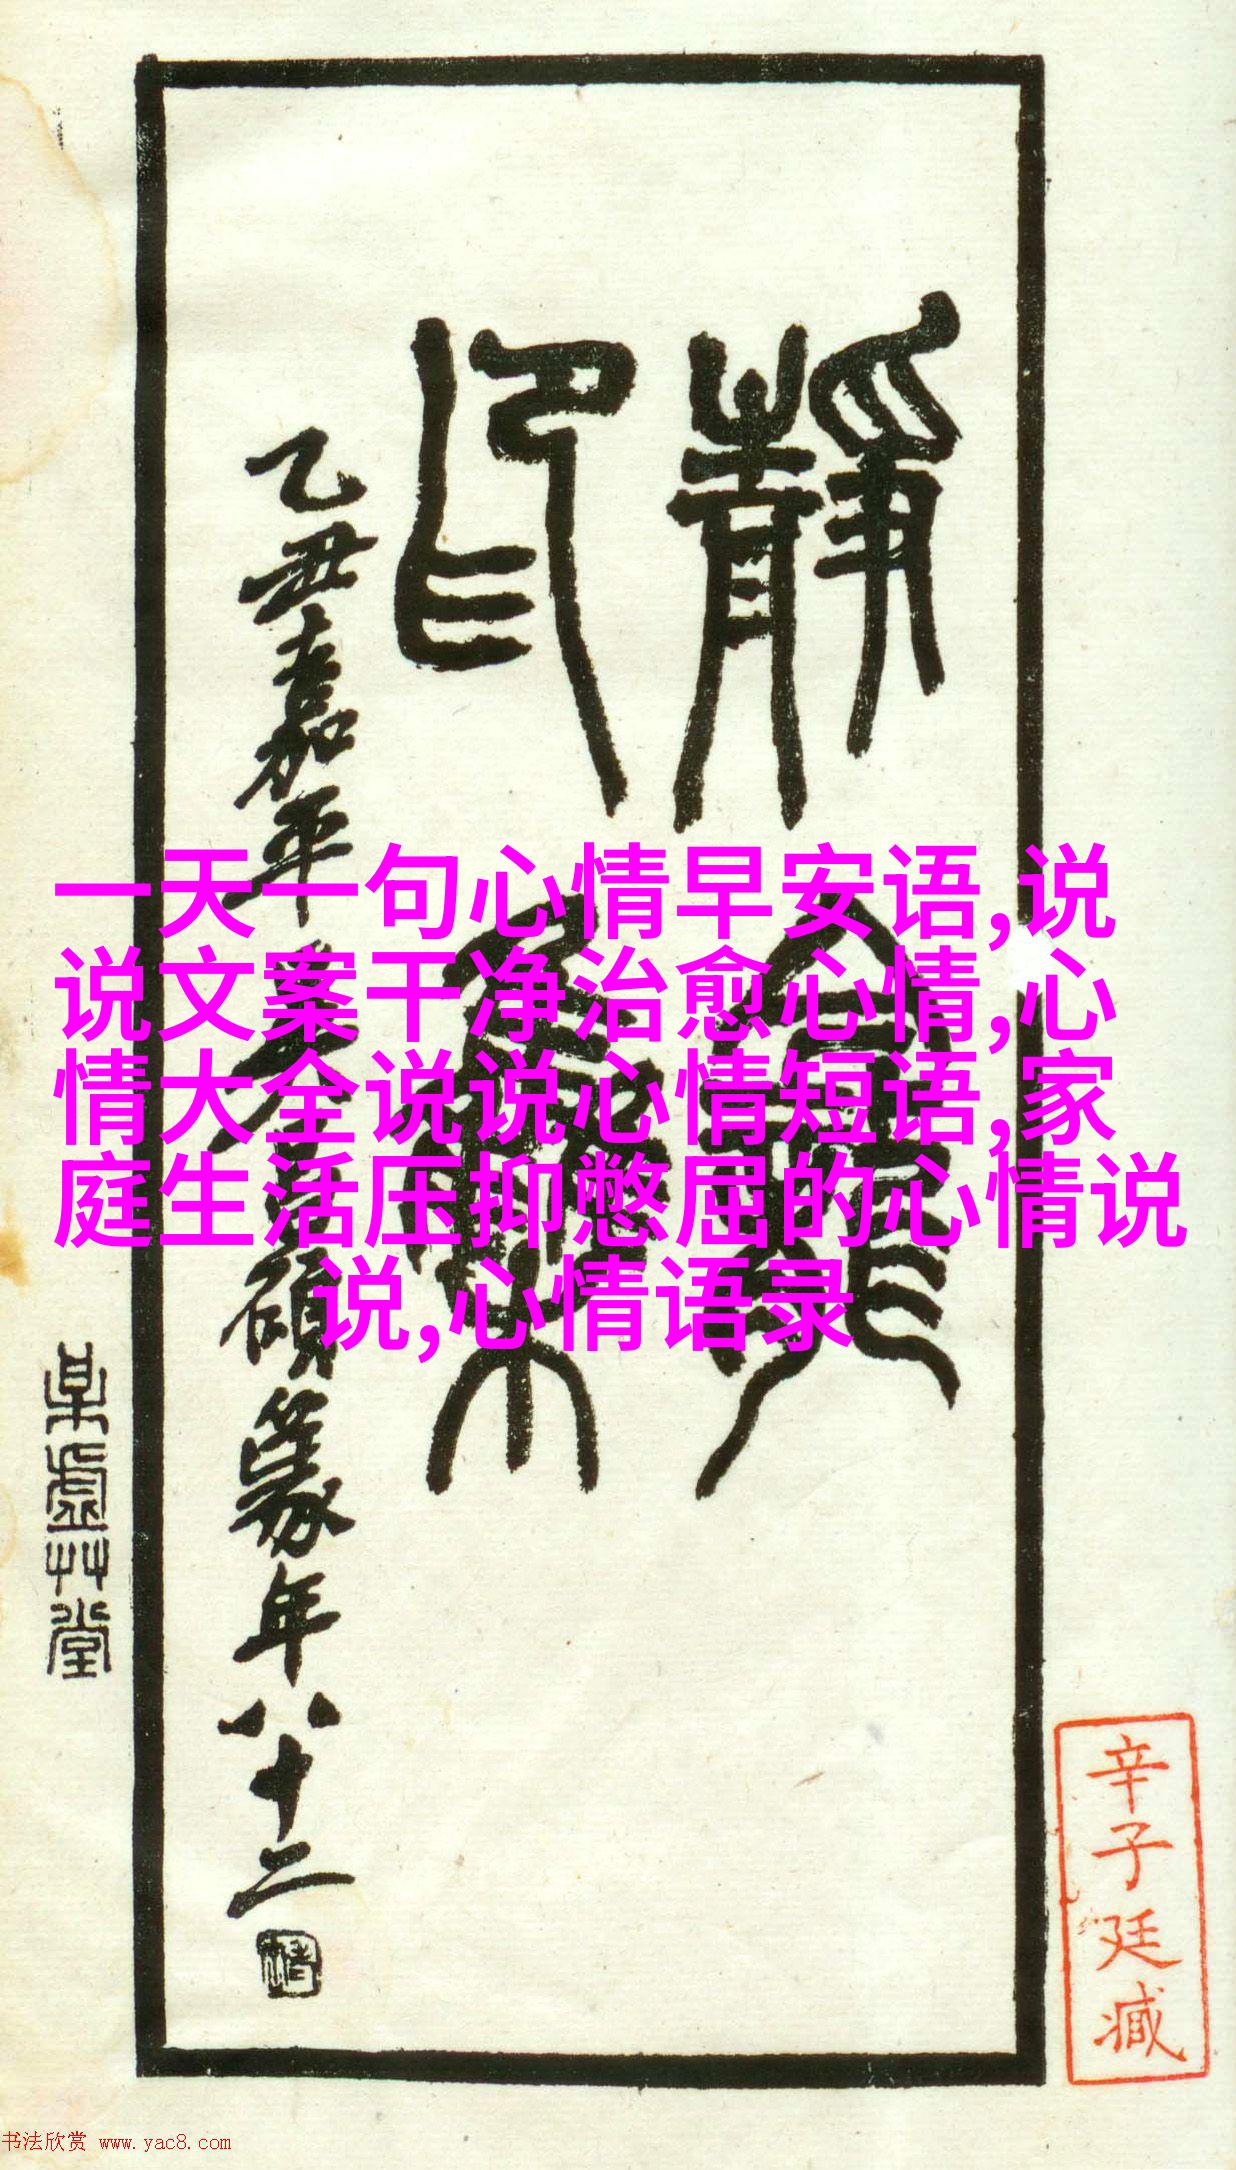 一天一句心情早安语,说
说文案干净治愈心情,心
情大全说说心情短语,家
庭生活压抑憋屈的心情说
说,心情语录
靜龕
印集
乙丑嘉平 碩篆年八十二
某虛艸堂
辛子廷臧
书法欣赏 www.yac8.com